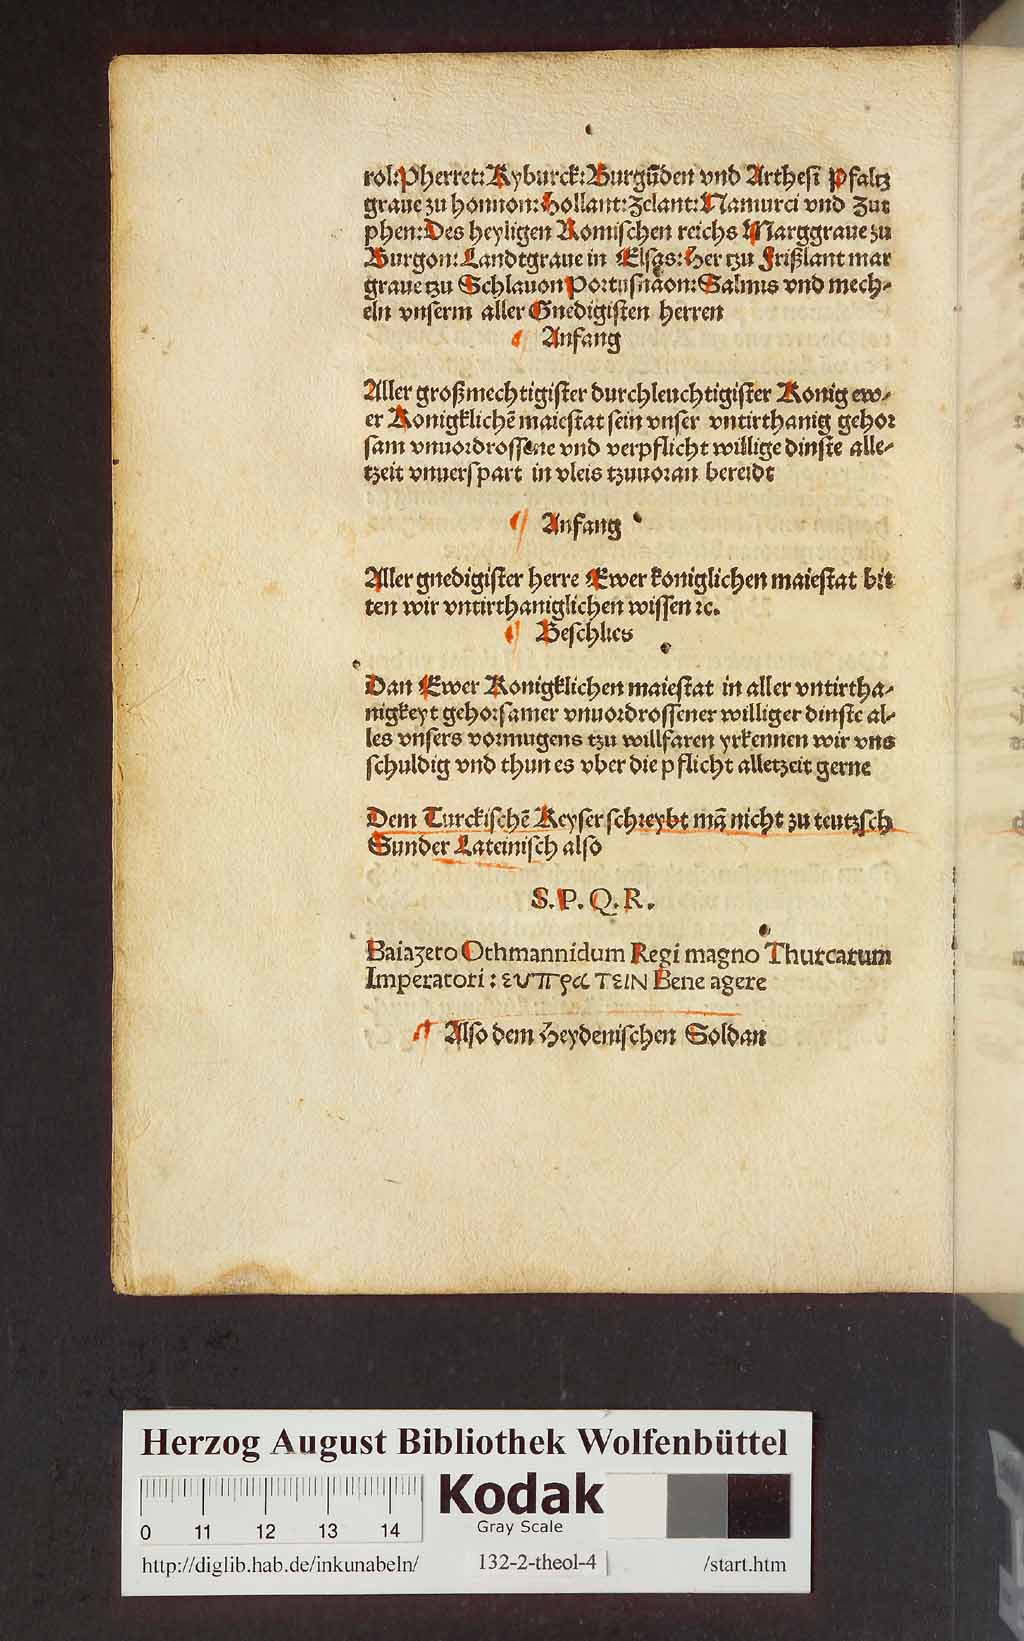 rol:Pherret:Kyburck:Burgūden vnd Arthesī Pfaltz
graue zu honnon:Hollant:Zelant:Namurci vnd Zut
phen:Des heyligen Romischen reichs Marggraue zu
Burgon:Landtgraue in Elsas:Her tzu Frißlant mar
graue tzu Schlauon Portusnaon:Salmis vnd mech-
eln vnserm aller Gnedigisten herren
¶ Anfang
Aller großmechtigister durchleuchtigister Konig ew-
er Konigklichē maiestat sein vnser vntirthanig gehor
sam vnuordrossene vnd verpflicht willige dinste alle-
tzeit vnuerspart in vleis tzuuoran bereidt
¶ Anfang
Aller gnedigister herre Ewer koniglichen maiestat bit
ten wir vntirthaniglichen wissen ꝛc.
¶ Beschlies
Dan Ewer Konigklichen maiestat in aller vntirtha-
nigkeyt gehorsamer vnuordrossener williger dinste al-
les vnsers vormugens tzu willfaren yrkennen wir vns
schuldig vnd thun es vber die pflicht alletzeit gerne
Dem Turckischē Keyser schreybt mā nicht zu teutzsch
Sunder Lateinisch also
S.P.Q.R.
Baiazeto Othmannidum Regi magno Thurcarum
Imperatori: ευπρατειν Bene agere
¶ Also dem Heydenischen Soldan
Herzog August Bibliothek Wolfenbüttel
Kodak
Gray Scale
0 11 12 13 14
http://diglib.hab.de/inkunabeln/ 132-2-theol-4 /start.htm